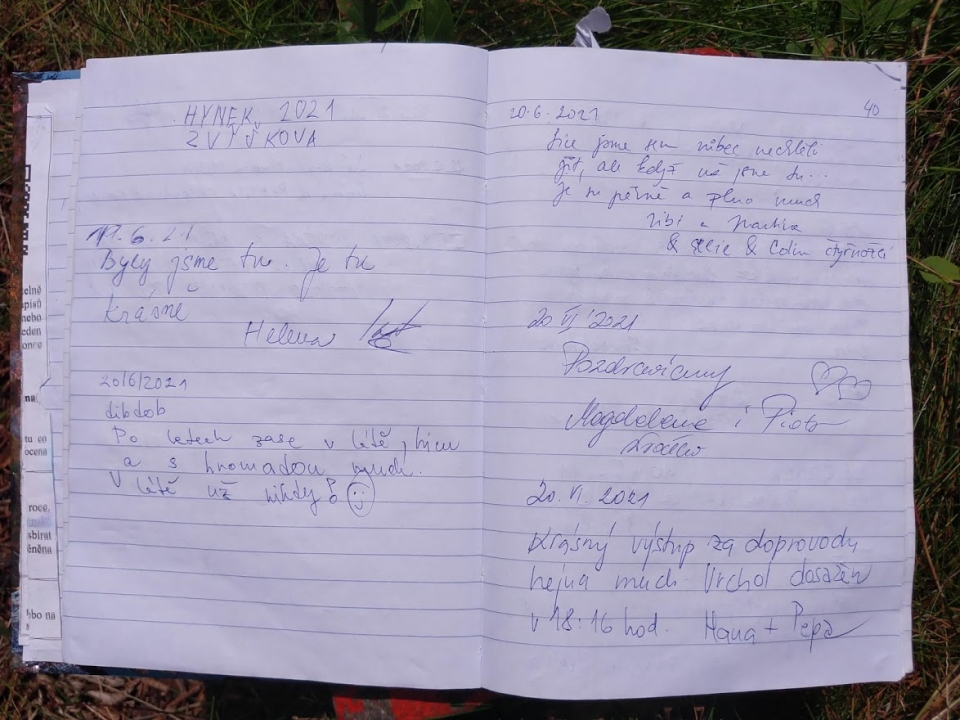 HYNEK, 2021
Z VÝŠKOVA
6. 21
Byly jsme tu. Je tu
krásně
Helena
20/6/2021
dibdob
Po letech zase v létě, hicu
a s hromadou much.
V létě už nikdy!
20.6.2021
40
Sice jsme sem vůbec nechtěli
jít, ale když už jsme tu...
Je tu pěkně a plno much
& & Colin čtyřnožci
20 VI 2021
Pozdrawiamy
Magdalena i Piotr
20. VI. 2021
Krásný výstup za doprovodu
hejna much. Vrchol dosažen
v 18:16 hod. Hana + Pepa
elně
apisů
nebo
eden
once
na
tu co
ocena
roce,
sbírat
ěněna
bo na